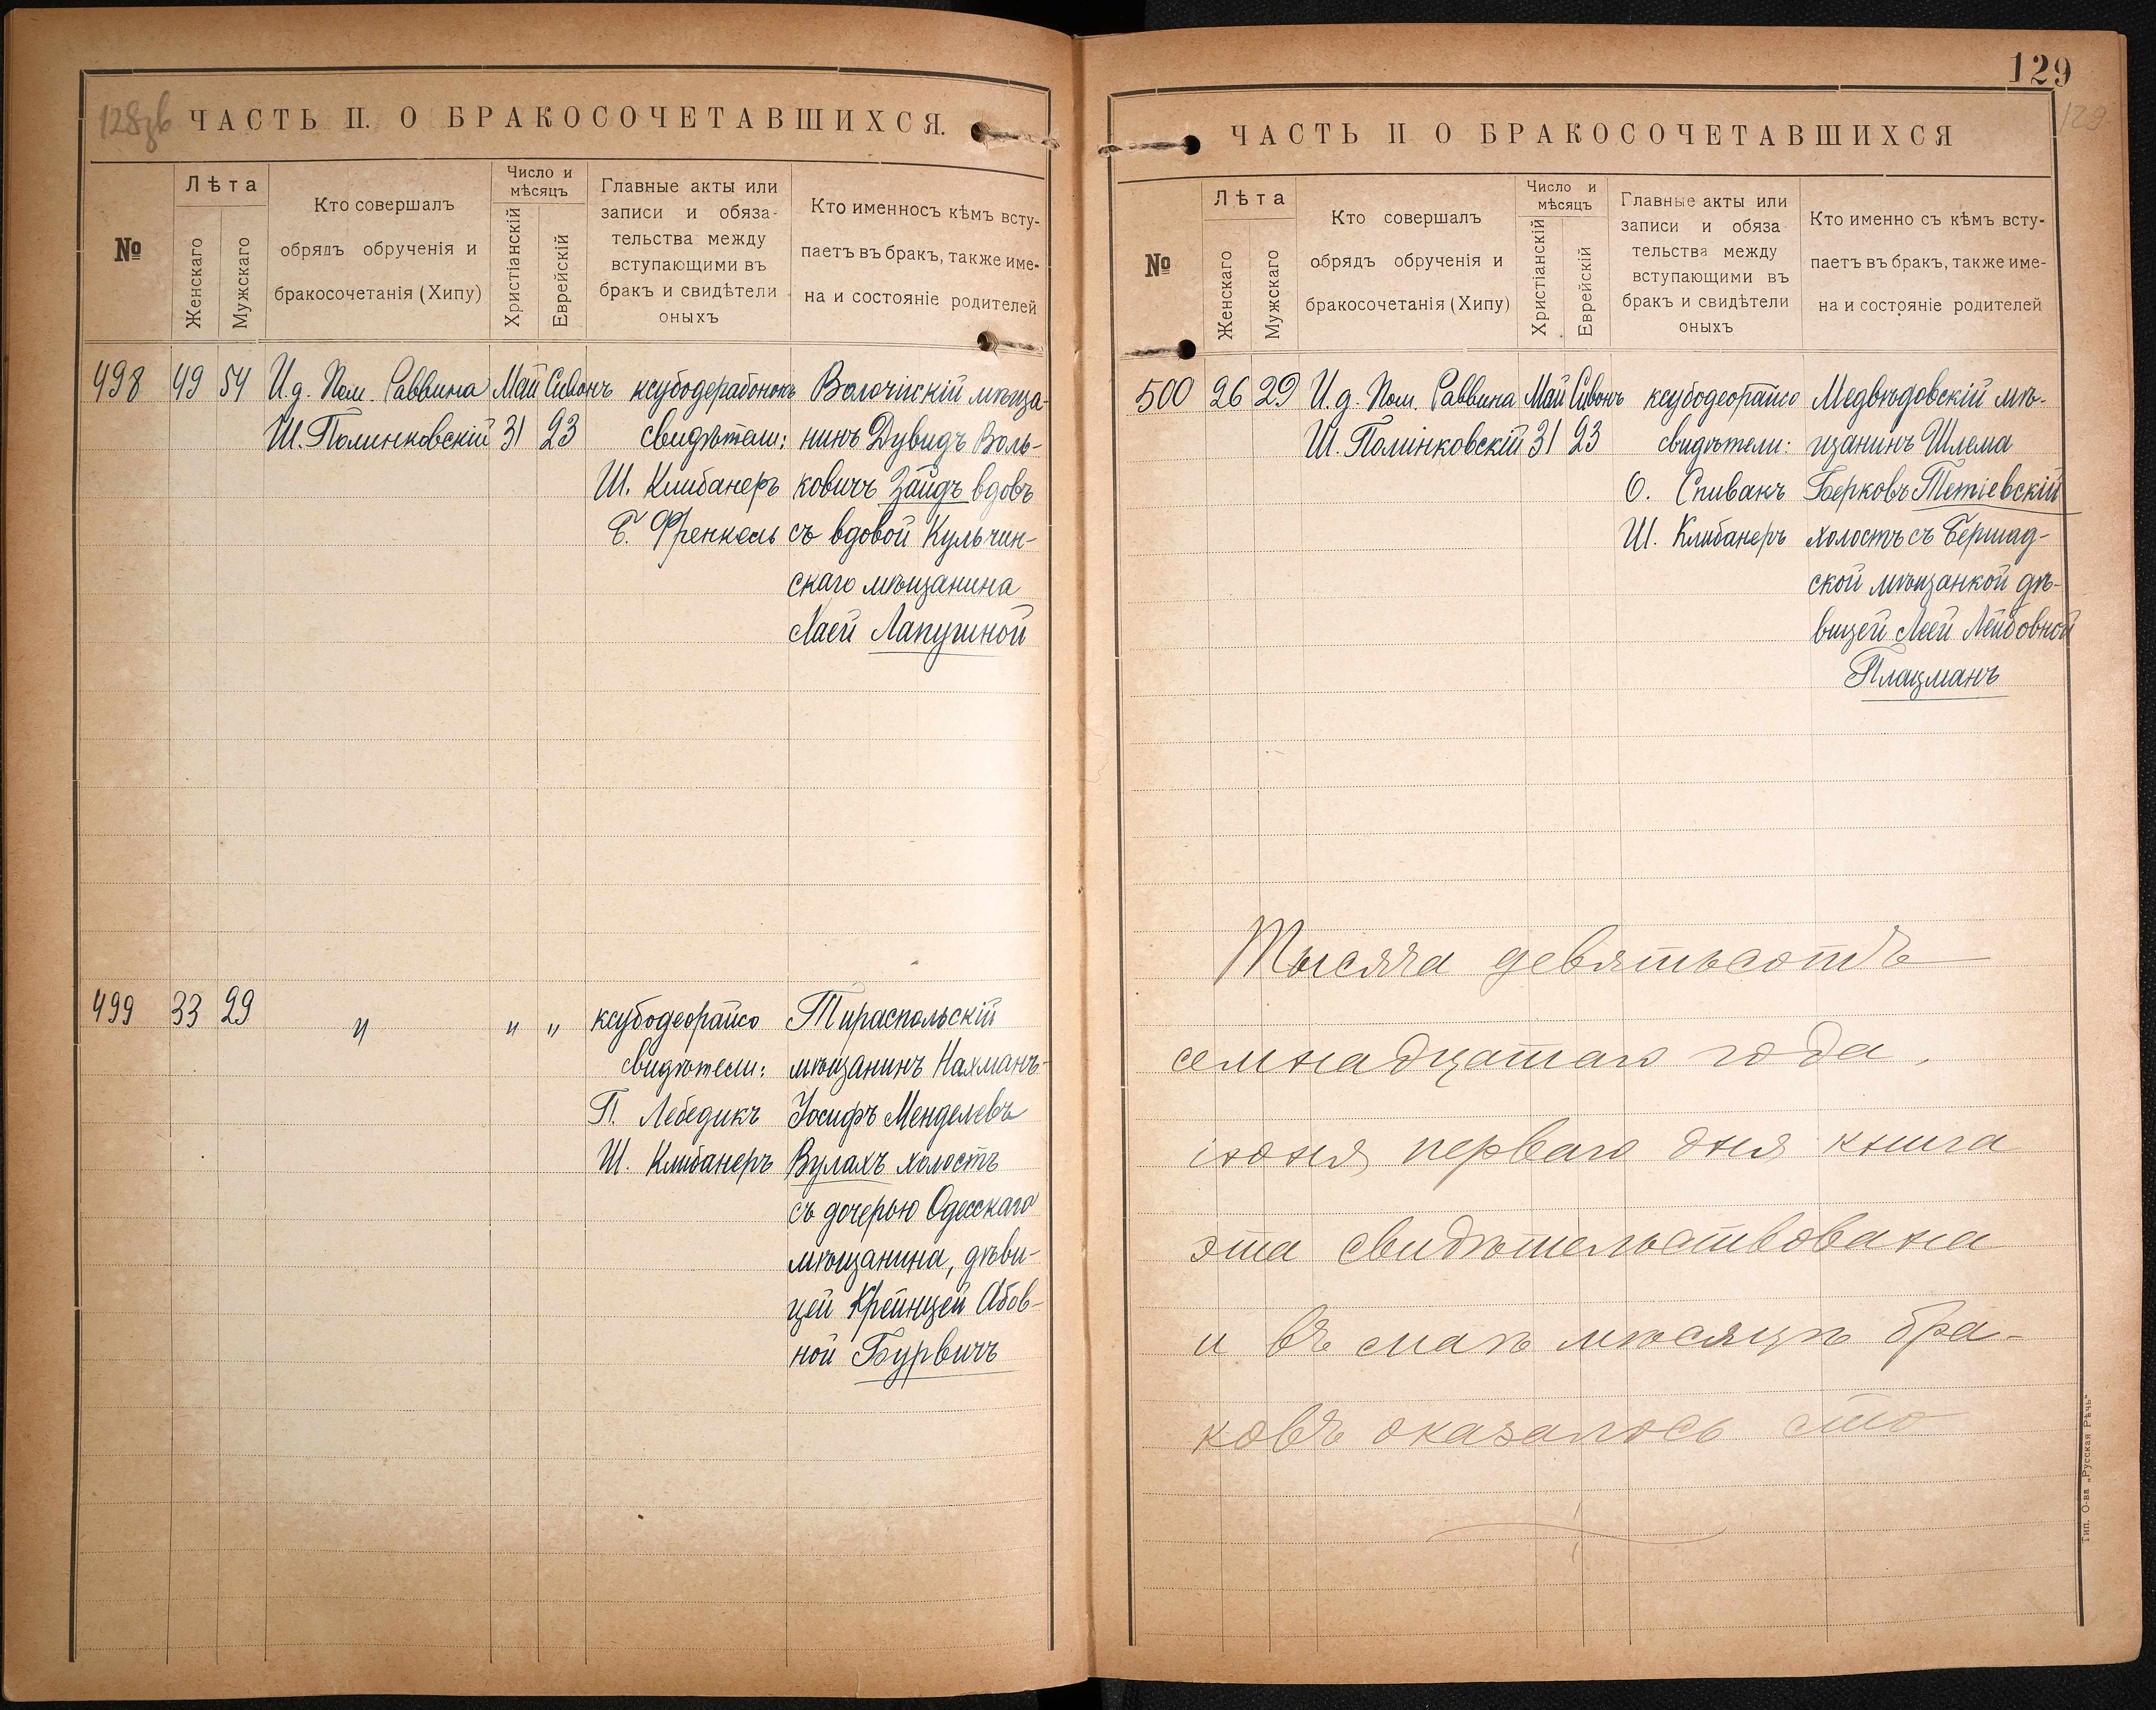 128зв
ЧАСТЬ II. О БРАКОСОЧЕТАВШИХСЯ.
№
Лѣта
Женскаго
Мужскаго
Кто совершалъ
обрядъ обрученія и
бракосочетанія (Хипу)
Число и
мѣсяцъ
Христіанскій
Еврейскій
Главные акты или
записи и обяза-
тельства между
вступающими въ
бракъ и свидѣтели
оныхъ
Кто именносъ кѣмъ всту-
паетъ въ бракъ, также име-
на и состояніе родителей
498 49 54 И.д. Пом. Раввина Май Сивонъ ксубодерабононъ Волочискій мѣща-
Ш. Полинковскій 31 23 свидѣтели: нинъ Дувидъ Воль-
Ш. Клибанеръ ковичъ Зайдъ вдовъ
Б. Френкель съ вдовой Кульчин-
скаго мѣщанина
Лаей Лапушной
499 33 29 " " " ксубодеорайсо Тираспольскій
свидѣтели: мѣщанинъ Нахманъ-
П. Лебедикъ Іосифъ Менделевъ
Ш. Клибанеръ Вулахъ холостъ
съ дочерью Одесскаго
мѣщанина, дѣви-
цей Крейнцей Абов-
ной Бурвичъ
129
129
ЧАСТЬ II О БРАКОСОЧЕТАВШИХСЯ
№
Лѣта
Женскаго
Мужскаго
Кто совершалъ
обрядъ обрученія и
бракосочетанія (Хипу)
Число и
мѣсяцъ
Христіанскій
Еврейскій
Главные акты или
записи и обяза
тельства между
вступающими въ
бракъ и свидѣтели
оныхъ
Кто именно съ кѣмъ всту-
паетъ въ бракъ, также име-
на и состояніе родителей
500 26 29 И.д. Пом. Раввина Май Сивонъ ксубодеорайсо Медвѣдовскій мѣ-
Ш. Полинковскій 31 23 свидѣтели: щанинъ Шлема
О. Спивакъ Берковъ Тетіевскій
Ш. Клибанеръ холостъ съ Бершад-
ской мѣщанкой дѣ-
вицей Леей Лейбовной
Плацманъ
Тысяча девятьсотъ
семнадцатаго года,
іюня перваго дня книга
эта свидѣтельствована
и въ маѣ мѣсяцѣ бра-
ковъ оказалось сто
Тип. О-ва „Русская Рѣчь"